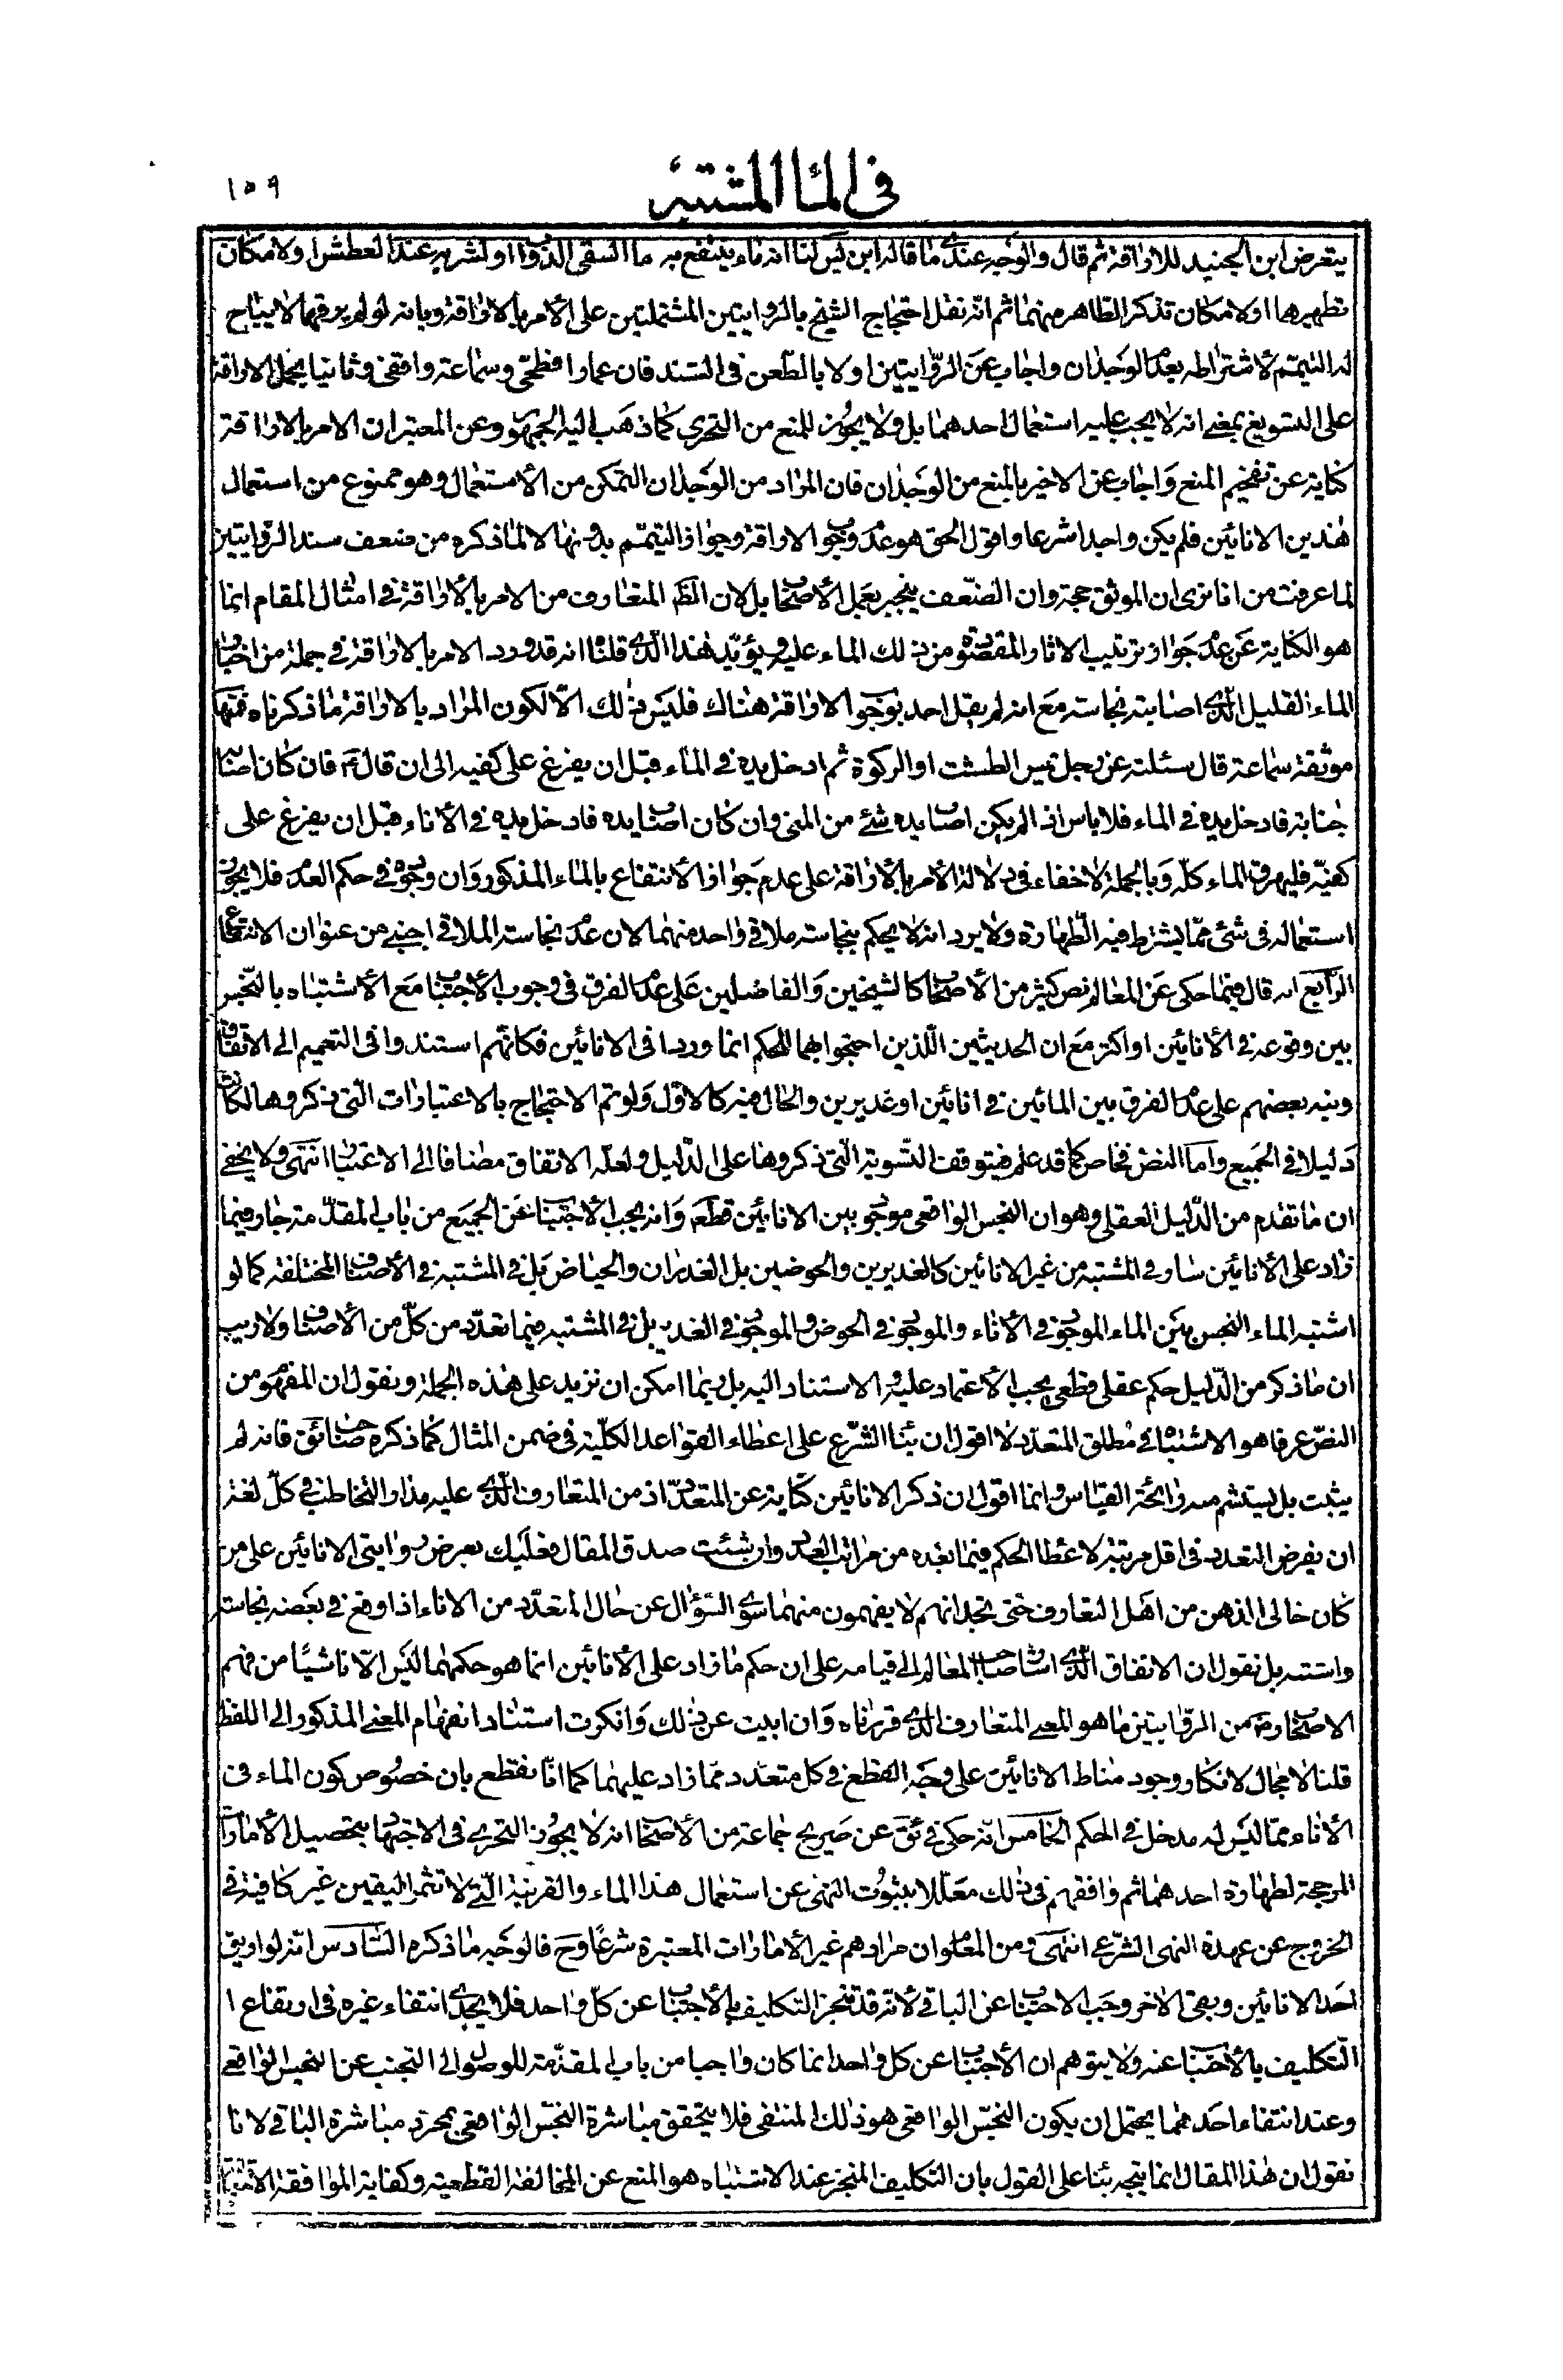 في الماء المشتبه
١٥٩
يتعرض ابن الجنيد للاراقة ثم قال والوجه عندي ما قاله ابن ادريس لنا انه ماء ينتفع به اما لسقى الدواب او لشربه عند العطش او لامكان
تطهيرها او لامكان تذكر الطاهر منهما ثم انه نقل احتجاج الشيخ بالروايتين المشتملتين على الأمر بالاراقة وبانه لو لم يرقهما لا يباح
له التيمم لأشتراطه بعدم الوجدان واجاب عن الروايتين اولا بالطعن في السند فان عمارا فطحي وسماعة واقفي وثانيا بحمل الاراقة
على التسويغ بمعنى انه لا يجب عليه استعمال احدهما بل ولا يجوز للمنع من التحري كما ذهب اليه الجمهور وعن المعتبر ان الامر بالاراقة
كناية عن تفخيم المنع وأجاب عن الاخير بالمنع من الوجدان فان المراد من الوجدان التمكن من الأستعمال وهو ممنوع من استعمال
هذين الانائين فلم يكن واجدا شرعا واقول الحق هو عدم وجوب الاراقة وجواز التيمم بدونها لا لما ذكره من ضعف سند الروايتين
لما عرفت من انا نرى ان الموثق حجة وان الضعف ينجبر بعمل الأصحاب بل لان الظم المتعارف من الامر بالأراقة في امثال المقام انما
هو الكناية عن عدم جواز ترتيب الاثار المقصودة من ذلك الماء عليه ويؤيد هذا الذي قلنا انه قد ورد الامر بالاراقة في جملة من اخبار
الماء القليل الذي اصابته نجاسة مع انه لم يقل احد بوجوب الاراقة هناك فليس ذلك الا لكون المراد بالاراقة ما ذكرناه فمنها
موثقة سماعة قال سئلته عن رجل يمس الطشت او الركوة ثم ادخل يده في الماء قبل ان يفرغ على كفيه الى ان قال ع فان كان اصابته
جنابة فادخل يده في الماء فلا باس اذا لم يكن اصاب يده شئ من المنى وان كان اصاب يده فادخل يده في الأناء قبل ان يفرغ على
كفيه فليهرق الماء كله وبالجملة لا خفاء في دلالة الأمر بالأراقة على عدم جواز الأنتفاع بالماء المذكور وان وجوده في حكم العدم فلا يجوز
استعماله في شئ مما يشترط فيه الطهارة ولا يرد انه لا يحكم بنجاسة ملاقي واحد منهما لان عدم نجاسة الملاقي اجنبي من عنوان الانتفاع
الرابع انه قال فيما حكى عن المعالم نص كثير من الأصحاب كالشيخين والفاضلين على عدم الفرق في وجوب الأجتناب مع الأشتباه بالنجس
بين وقوعه في الأنائين او اكثر مع ان الحديثين اللذين احتجوا بهما للحكم انما وردا في الانائين فكانهم استندوا في التعميم الى الاتفاق
ونبه بعضهم على عدم الفرق بين المائين في انائين او غديرين والحال فيه كالاول ولو تم الاحتجاج بالاعتبارات التي ذكروها لكان
دليلا في الجميع واما النص فخاص كما قد علم فيتوقف التسوية التي ذكروها على الدليل ولعله الاتفاق مضافا الى الاعتبار انتهى ولا يخفى
ان ما تقدم من الدليل العقلي وهو ان النجس الواقعي موجود بين الانائين قطعا وانه يجب الأجتناب عن الجميع من باب المقدمة جار فيما
زاد على الأنائين سار في المشتبه من غير الانائين كالغديرين والحوضين بل الغدران والحياض بل في المشتبه في الأصناف المختلفة كما لو
اشتبه الماء النجس بين الماء الموجود في الأناء والموجود في الحوض والموجود في الغدير بل في المشتبه فيما تعدد من كل من الأصناف ولا ريب
ان ما ذكر من الدليل حكم عقلي قطعي يجب الأعتماد عليه والاستناد اليه بل ربما امكن ان نزيد على هذه الجملة ونقول ان المفهوم من
النص عرفا هو الاشتباه في مطلق المتعدد لا اقول ان بناء الشرع على اعطاء القواعد الكلية في ضمن المثال كما ذكره صاحب ئق فانه لم
يثبت بل يستشم منه رائحة القياس وانما اقول ان ذكر الانائين كناية عن المتعدد اذ من المتعارف الذي عليه مدار التخاطب في كل لغة
ان يفرض التعدد في اقل مرتبة لاعطاء الحكم فيما بعده من مراتب العدد وان شئت صدق المقال فعليك بعرض روايتي الانائين على من
كان خالي الذهن من اهل التعارف حتى تجد انهم لا يفهمون منهما سوى السؤال عن حال المتعدد من الاناء اذا وقع في بعضه نجاسة
واشتبه بل نقول ان الاتفاق الذي اشار صاحب المعالم الى قيامه على ان حكم ما زاد على الأنائين انما هو حكمهما ليس الا ناشيا من فهم
الاصحاب ره من الروايتين ما هو المعنى المتعارف الذي قررناه وان ابيت عن ذلك وانكرت استناد انفهام المعنى المذكور الى اللفظ
قلنا لا مجال لانكار وجود مناط الانائين على وجه القطع في كل متعدد مما زاد عليهما كما انا نقطع بان خصوص كون الماء في
الأناء مما ليس له مدخل في الحكم الخامس انه حكى في ئق عن صريح جماعة من الأصحاب انه لا يجوز التحري في الاجتهاد بتحصيل الأمارات
المرجحة لطهارة احدهما ثم وافقهم في ذلك معللا بثبوت النهى عن استعمال هذا الماء والقرينة التي لا تثمر اليقين غير كافية في
الخروج عن عهدة النهى الشرعي انتهى ومن المعلوم ان مرادهم غير الأمارات المعتبرة شرعًا وح فالوجه ما ذكره السادس انه لو اريق
احد الانائين وبقى الاخر وجب الاجتناب عن الباقي لأنه قد تنجز التكليف بالأجتناب عن كل واحد فلا يجدي انتفاء غيره في ارتفاع ا
التكليف بالأجتناب عنه ولا يتوهم ان الأجتناب عن كل واحد انما كان واجبا من باب المقدمة للوصول الى التجنب عن النجس الواقعي
وعند انتفاء احدهما يحتمل ان يكون النجس الواقعي هو ذلك المنتفى فلا يتحقق مباشرة النجس الواقعي بمجرد مباشرة الباقي لانا
نقول ان هذا المقال انما يتجه بناء على القول بان التكليف المنجز عند الاشتباه هو المنع عن المخالفة القطعية وكفاية الموافقة